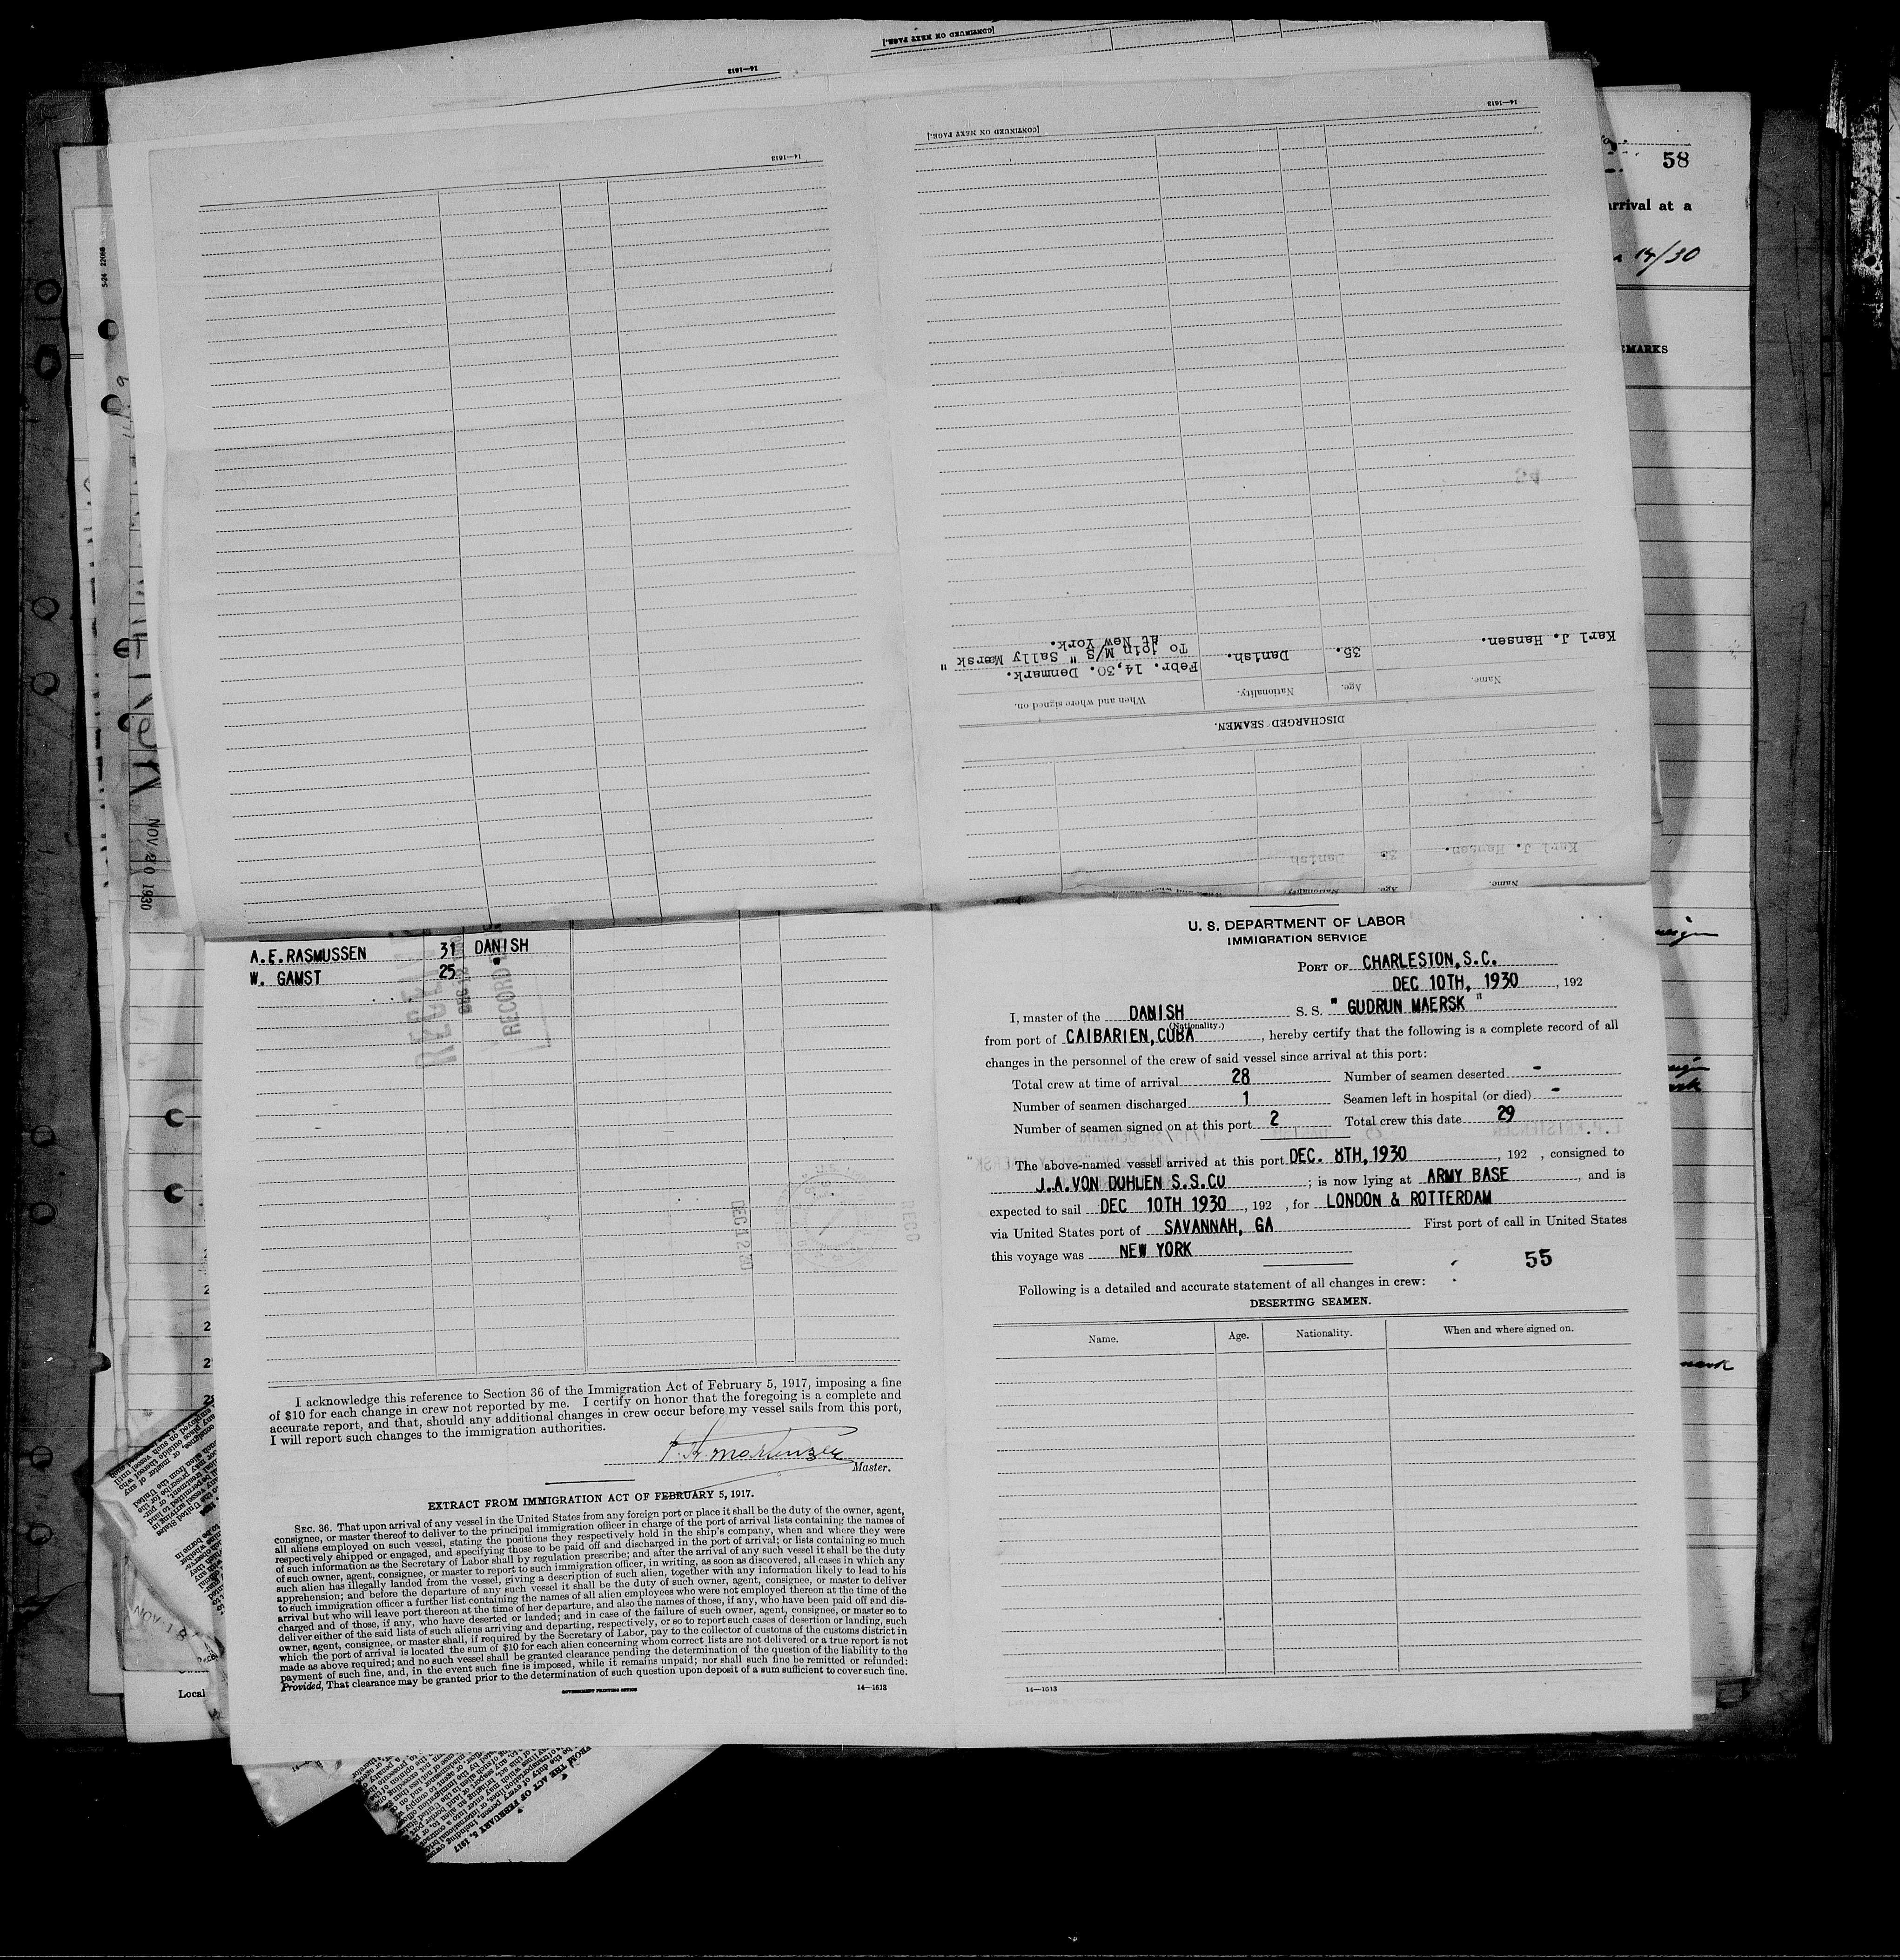 [CONTINUED ON NEXT PAGE.]
14—1613
14—1613
[CONTINUED ON NEXT PAGE.]
14—1613
58
arrival at a
14/30
EMARKS
524 22066
NOV 20 1930
DISCHARGED SEAMEN.
Name. Age. Nationality. When and where signed on.
Karl J. Hansen. 35. Danish. Febr. 14,30. Denmark.
To join M/S " Sally Mærsk "
at New York.
Name. Age. Nationality.
Karl J. Hansen. 35 Danish
A.E.RASMUSSEN 31 DANISH
W. GAMST 25 "
RECORD
DEC 12 30
I acknowledge this reference to Section 36 of the Immigration Act of February 5, 1917, imposing a fine
of $10 for each change in crew not reported by me. I certify on honor that the foregoing is a complete and
accurate report, and that, should any additional changes in crew occur before my vessel sails from this port,
I will report such changes to the immigration authorities.
Master.
EXTRACT FROM IMMIGRATION ACT OF FEBRUARY 5, 1917.
SEC. 36. That upon arrival of any vessel in the United States from any foreign port or place it shall be the duty of the owner, agent,
consignee, or master thereof to deliver to the principal immigration officer in charge of the port of arrival lists containing the names of
all aliens employed on such vessel, stating the positions they respectively hold in the ship's company, when and where they were
respectively shipped or engaged, and specifying those to be paid off and discharged in the port of arrival; or lists containing so much
of such information as the Secretary of Labor shall by regulation prescribe; and after the arrival of any such vessel it shall be the duty
of such owner, agent, consignee, or master to report to such immigration officer, in writing, as soon as discovered, all cases in which any
such alien has illegally landed from the vessel, giving a description of such alien, together with any information likely to lead to his
apprehension; and before the departure of any such vessel it shall be the duty of such owner, agent, consignee, or master to deliver
to such immigration officer a further list containing the names of all alien employees who were not employed thereon at the time of the
arrival but who will leave port thereon at the time of her departure, and also the names of those, if any, who have been paid off and dis-
charged and of those, if any, who have deserted or landed; and in case of the failure of such owner, agent, consignee, or master so to
deliver either of the said lists of such aliens arriving and departing, respectively, or so to report such cases of desertion or landing, such
owner, agent, consignee, or master shall, if required by the Secretary of Labor, pay to the collector of customs of the customs district in
which the port of arrival is located the sum of $10 for each alien concerning whom correct lists are not delivered or a true report is not
made as above required; and no such vessel shall be granted clearance pending the determination of the question of the liability to the
payment of such fine, and, in the event such fine is imposed, while it remains unpaid; nor shall such fine be remitted or refunded:
Provided, That clearance may be granted prior to the determination of such question upon deposit of a sum sufficient to cover such fine.
GOVERNMENT PRINTING OFFICE 14—1613
U. S. DEPARTMENT OF LABOR
IMMIGRATION SERVICE
PORT OF CHARLESTON,S.C.
DEC 10TH, 1930 , 192
I, master of the DANISH S. S. " GUDRUN MAERSK "
(Nationality.)
from port of CAIBARIEN,CUBA , hereby certify that the following is a complete record of all
changes in the personnel of the crew of said vessel since arrival at this port:
Total crew at time of arrival 28 Number of seamen deserted -
Number of seamen discharged 1 Seamen left in hospital (or died) -
Number of seamen signed on at this port 2 Total crew this date 29
The above-named vessel arrived at this port DEC. 8TH,1930 , 192 , consigned to
J.A.VON DOHLEN S.S.CO ; is now lying at ARMY BASE , and is
expected to sail DEC 10TH 1930 , 192 , for LONDON & ROTTERDAM
via United States port of SAVANNAH, GA First port of call in United States
this voyage was NEW YORK
55
Following is a detailed and accurate statement of all changes in crew:
DESERTING SEAMEN.
Name. Age. Nationality. When and where signed on.
14—1613
Local
NOV 18
FROM THE ACT OF FEBRUARY 5, 1917